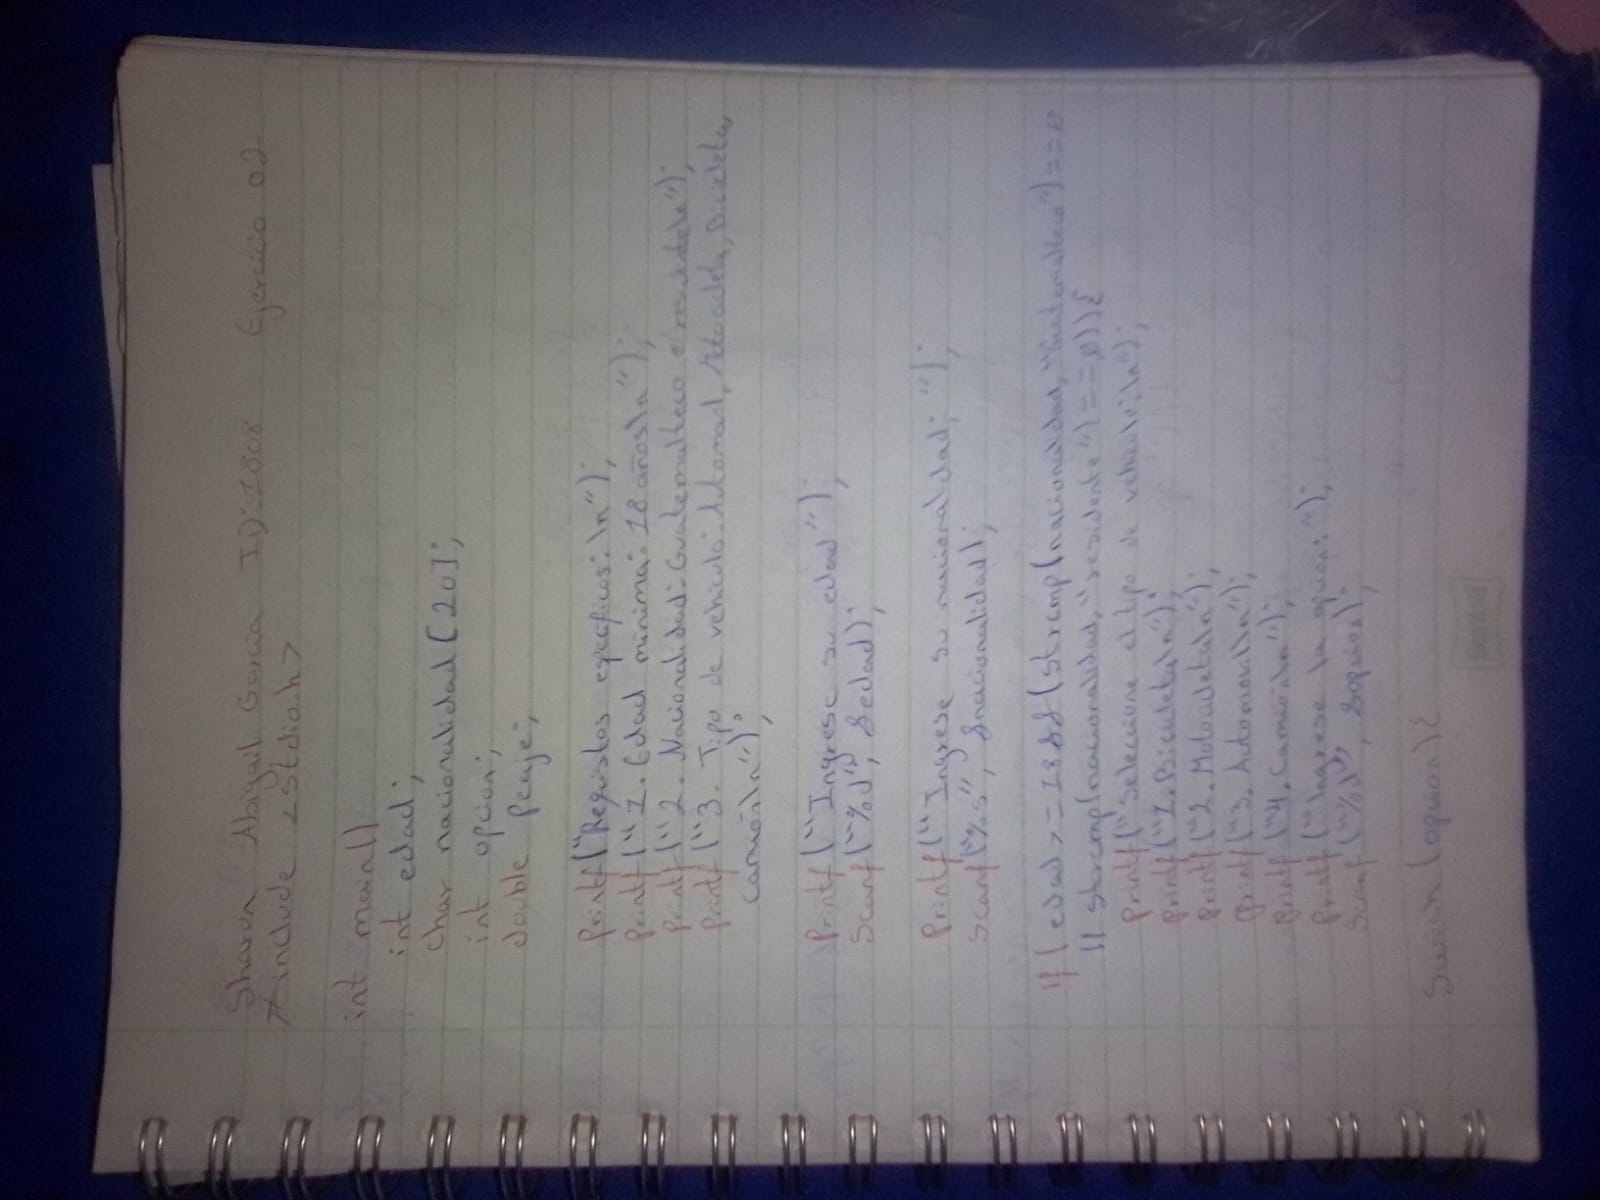 Sharon Abigail Garcia ID:1808 Ejercicio 02
#include <Stdio.h>
int main()
int edad;
char nacionalidad [20];
int opcion;
double peaje;
printf("Requisitos especificos:\n");
printf("1. Edad minima: 18 años\n");
printf("2. Nacionalidad: Guatemalteco o residente");
printf("3. Tipo de vehiculo: Automovil, Motocicleta, Bicicleta,
camión\n");
Printf("Ingrese su edad");
Scanf("%d", &edad);
Printf("Ingrese su nacionalidad: ");
Scanf("%s", &nacionalidad);
If (edad >= 18 && (strcmp(nacionalidad, "Guatemalteco") == 0
|| strcmp(nacionalidad, "residente") == 0)){
printf("Seleccione el tipo de vehiculo:\n");
printf("1. Bicicleta\n");
printf("2. Motocicleta\n");
printf("3. Automovil\n");
printf("4. Camión\n");
printf("Ingrese la opción:");
Scanf("%d", &opcion);
Switch (opcion){